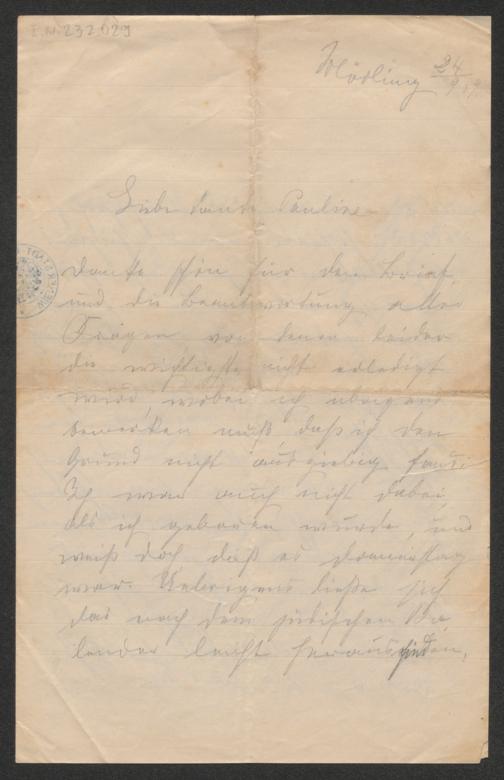 I.N. 232.029
Mödling 24/9
Liebe Tante Pauline
danke schön für den Brief
und die Beantwortung aller
Fragen von denen leider
die wichtigste nicht erledigt
wird wobei ich übrigens
bemerken muß, daß ich den
Grund nicht ausgiebig fand.
Ich war auch nicht dabei,
als ich geboren wurde, und
weiß doch daß es Donnerstag
war. Uebrigens ließe sich
das nach dem jüdischen Ka
lender leicht herausfinden,